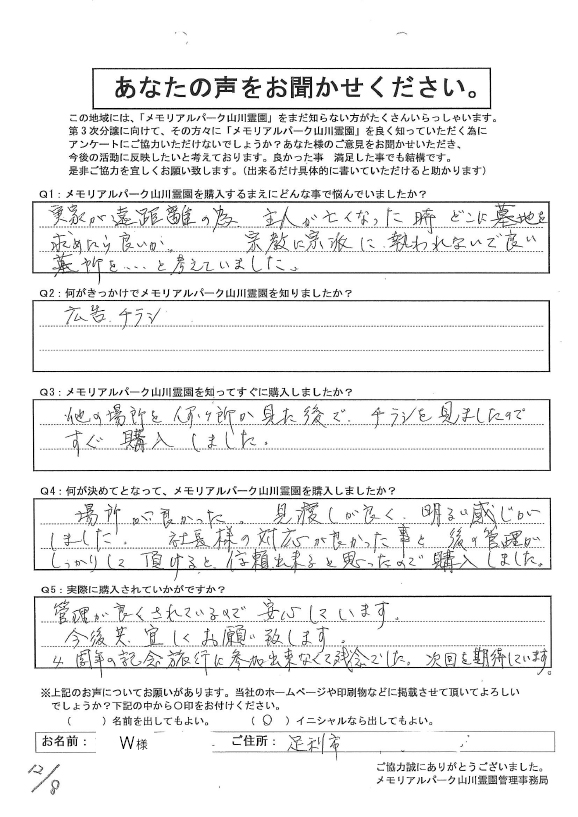 あなたの声をお聞かせください。
この地域には、「メモリアルパーク山川霊園」をまだ知らない方がたくさんいらっしゃいます。
第3次分譲に向けて、その方々に「メモリアルパーク山川霊園」を良く知っていただく為に
アンケートにご協力いただけないでしょうか？あなた様のご意見をお聞かせいただき、
今後の活動に反映したいと考えております。良かった事　満足した事でも結構です。
是非ご協力を宜しくお願い致します。（出来るだけ具体的に書いていただけると助かります）
Q1：メモリアルパーク山川霊園を購入するまえにどんな事で悩んでいましたか？
実家が遠距離の為　主人が亡くなった時 どこに墓地を
求めたら良いか。　宗教に宗派に 執われないで良い
墓所を…と考えていました。
Q2：何がきっかけでメモリアルパーク山川霊園を知りましたか？
広告 チラシ
Q3：メモリアルパーク山川霊園を知ってすぐに購入しましたか？
他の場所を何ヶ所か見た後で、チラシを見ましたので
すぐ 購入 しました。
Q4：何が決めてとなって、メモリアルパーク山川霊園を購入しましたか？
場所が良かった。 見渡しが良く、明るい感じが
しました。 社長様の対応が良かった事と 後の管理が
しっかりして 頂けると、信頼出来ると思ったので購入しました。
Q5：実際に購入されていかがですか？
管理が良くされているので 安心しています。
今後共 宜しくお願い致します。
4周年の記念旅行に参加出来なくて残念でした。次回を期待しています。
※上記のお声についてお願いがあります。当社のホームページや印刷物などに掲載させて頂いてよろしい
でしょうか？下記の中から〇印をお付けください。
（　　）名前を出してもよい。　（ 〇 ）イニシャルなら出してもよい。
お名前：　W様　ご住所：　足利市
12/8
ご協力誠にありがとうございました。
メモリアルパーク山川霊園管理事務局